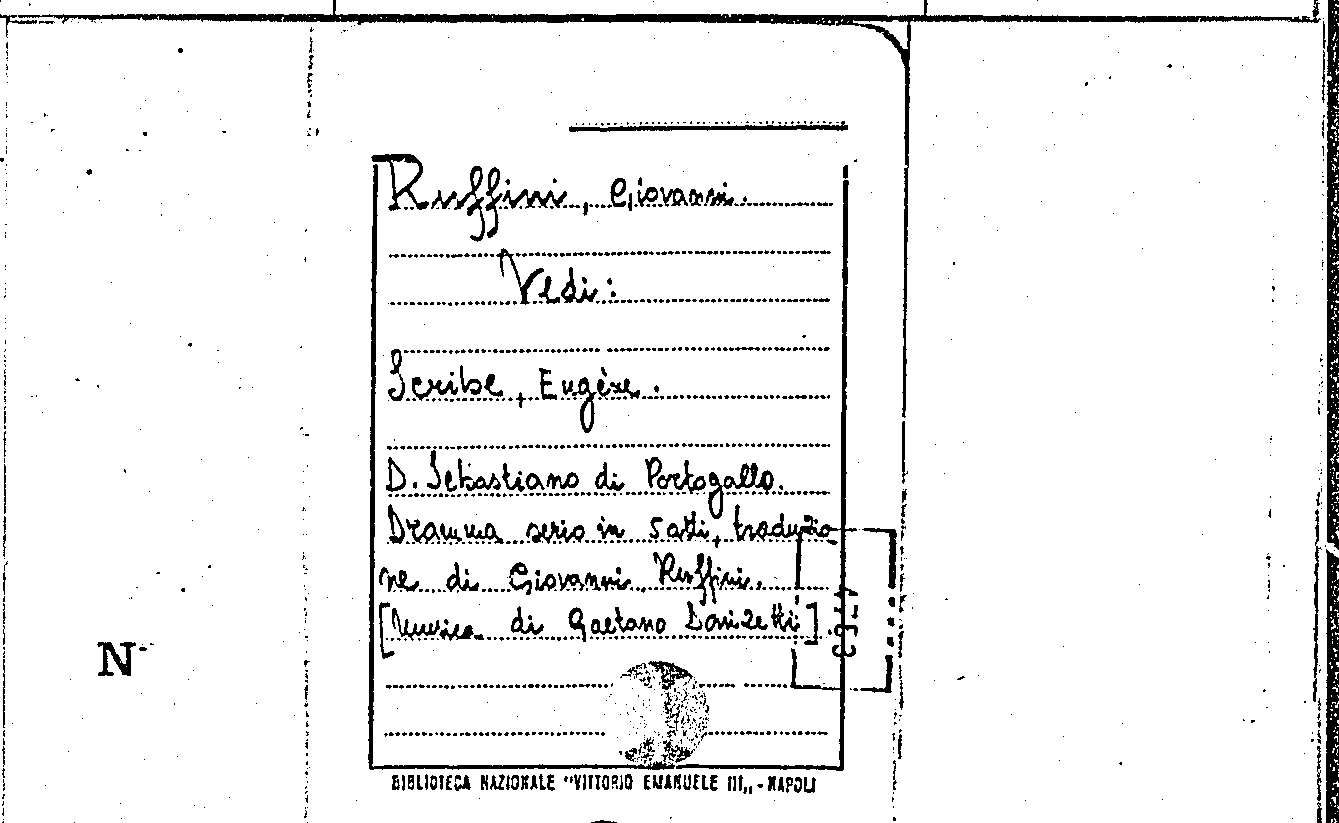 Ruffini, Giovanni.
Vedi:
Scribe, Eugène.
D. Sebastiano di Portogallo.
Dramma serio in 5 atti, traduzio
ne di Giovanni Ruffini.
[Musica di Gaetano Donizetti].
N
BIBLIOTECA NAZIONALE "VITTORIO EMANUELE III„ - NAPOLI